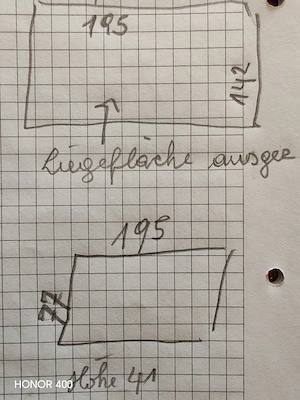 195
142
Liegefläche ausge
195
77
Höhe 41
HONOR 400